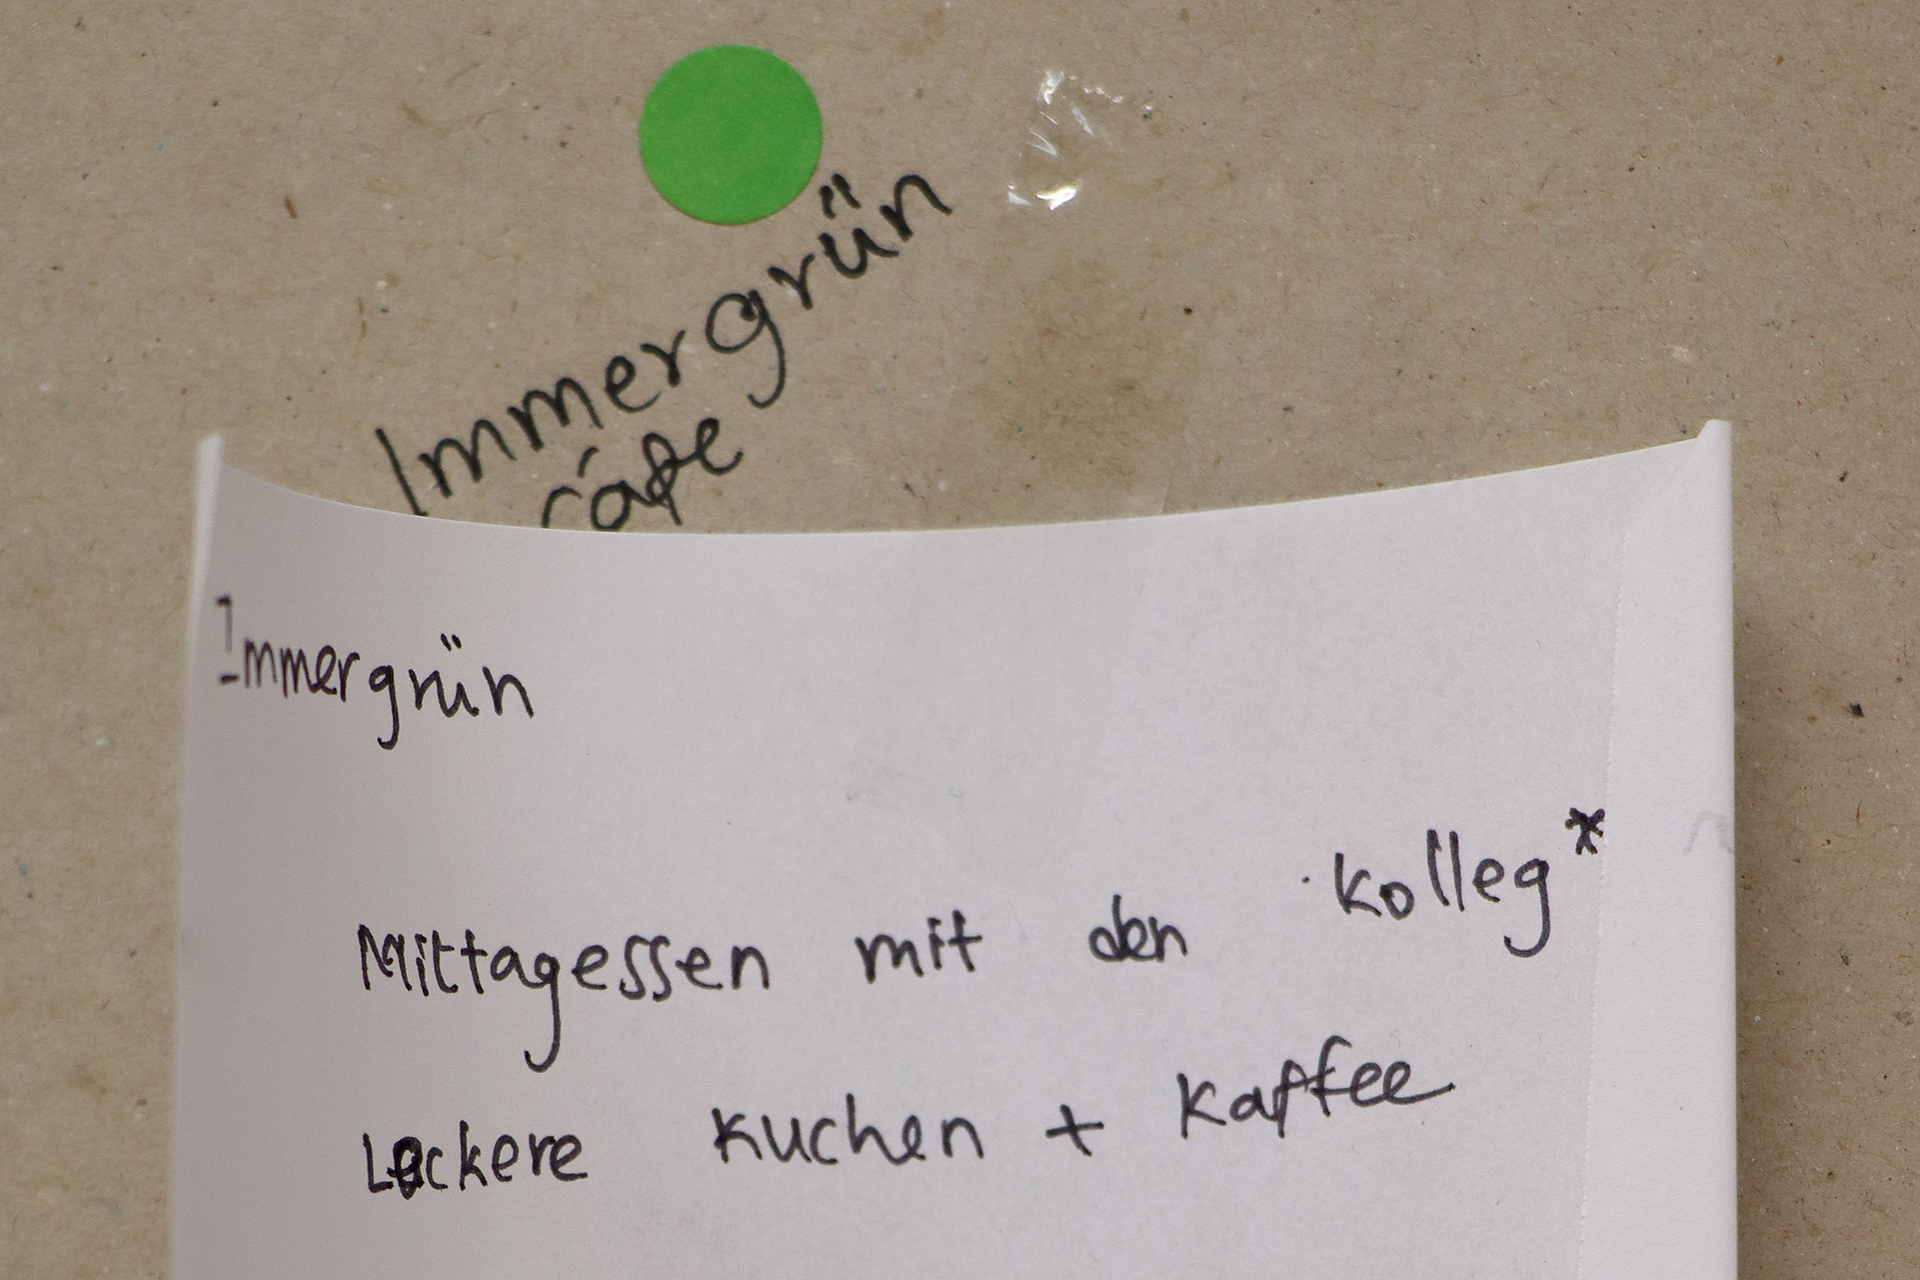 Immergrün
cáfe
Immergrün
Mittagessen mit den Kolleg*
Leckere Kuchen + Kaffee